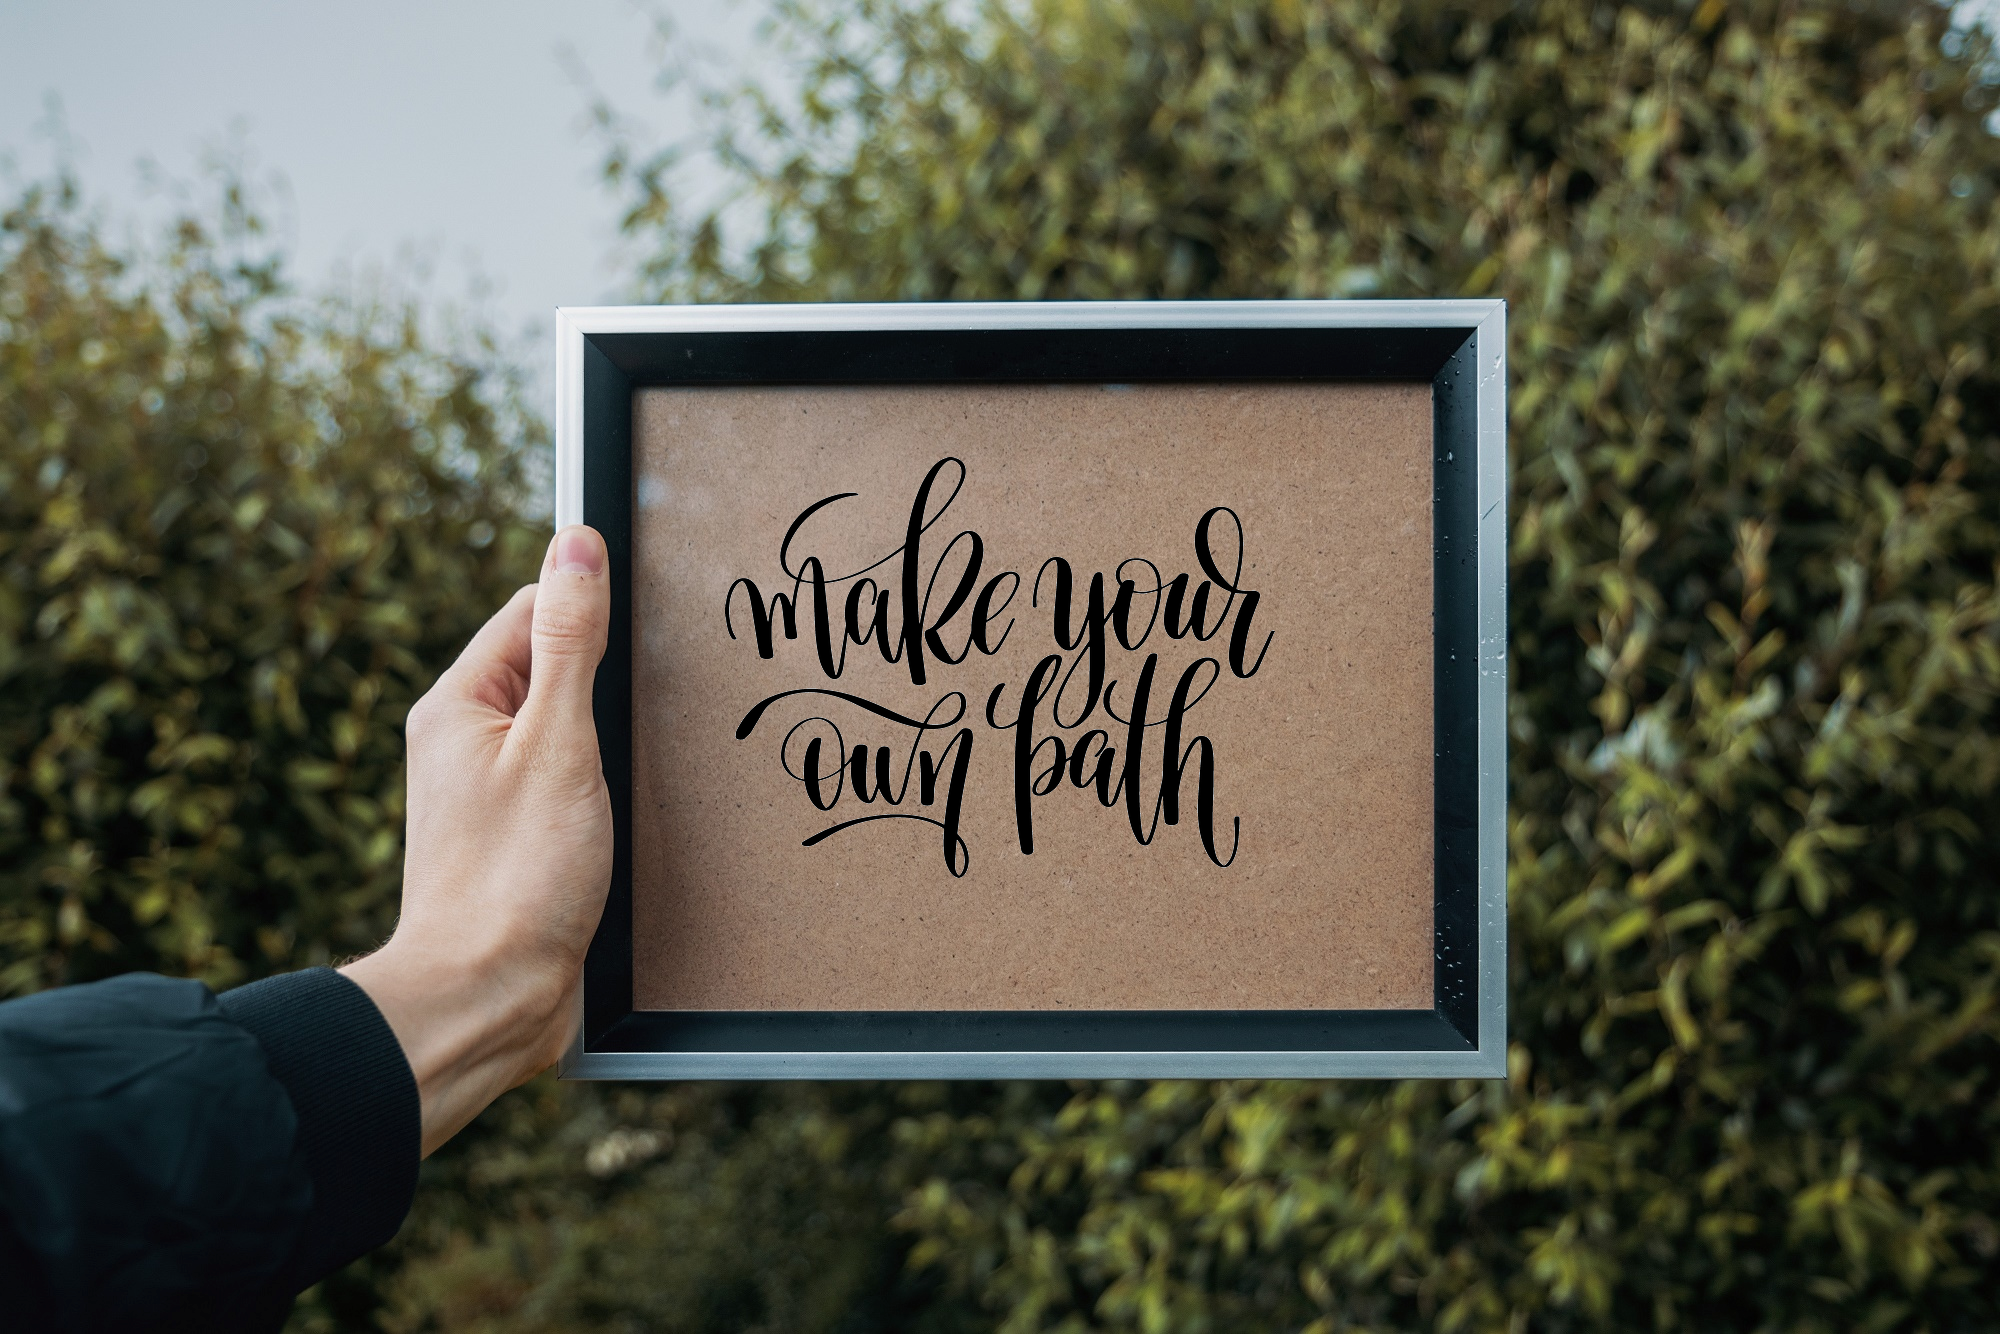 make your
own path